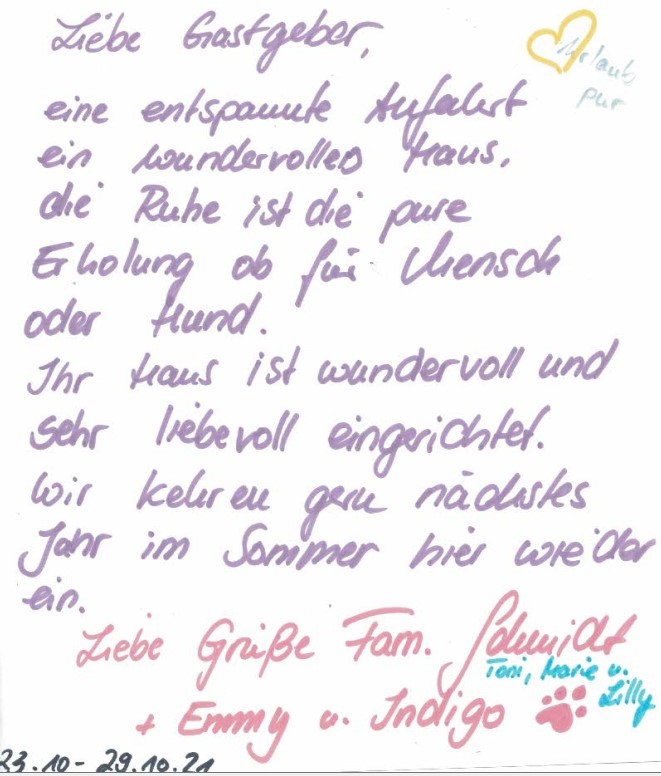 Liebe Gastgeber,
Urlaub
pur
eine entspannte Anfahrt
ein wundervolles Haus,
die Ruhe ist die pure
Erholung ob für Mensch
oder Hund.
Ihr Haus ist wundervoll und
sehr liebevoll eingerichtet.
Wir kehren gern nächstes
Jahr im Sommer hier wieder
ein.
Liebe Grüße Fam. Schmidt
Toni, Marie u.
Lilly
+ Emmy u. Indigo
23.10 - 29.10.21